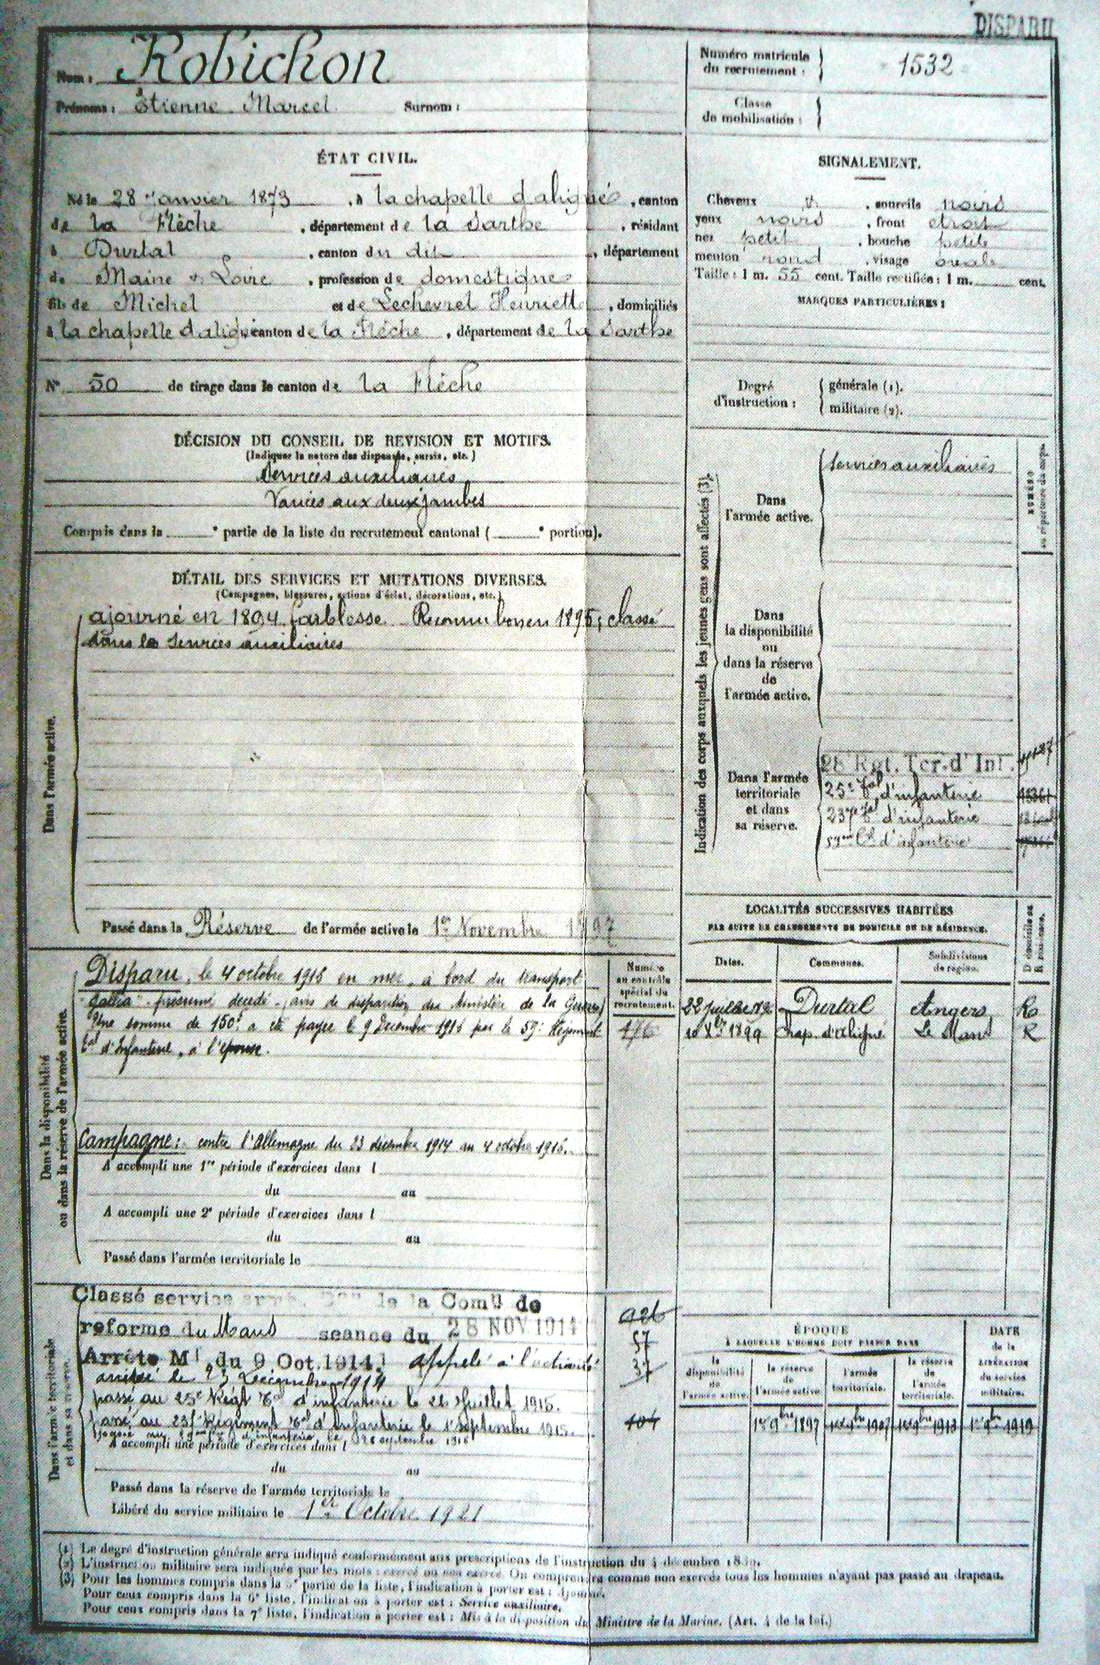 DISPARU
Nom : Robichon
Prénoms : Etienne Marcel Surnom :
Numéro matricule du recrutement : 1532
Classe de mobilisation :
ÉTAT CIVIL.
Né le 28 Janvier 1873, à la chapelle d'aligné, canton
de la Flèche, département de la Sarthe, résidant
à Durtal, canton du dit, département
de Maine & Loire, profession de domestique
fils de Michel et de Lechevrel Henriette, domiciliés
à la chapelle d'aligné canton de la Flèche, département de la Sarthe
N° 50 de tirage dans le canton de la Flèche
SIGNALEMENT.
Cheveux, sourcils noirs
yeux noirs, front etroit
nez petit, bouche petite
menton rond, visage ovale
Taille : 1 m. 55 cent. Taille rectifiée : 1 m. cent.
MARQUES PARTICULIÈRES :
Degré d'instruction :
générale (1).
militaire (2).
DÉCISION DU CONSEIL DE REVISION ET MOTIFS.
(Indiquer la nature des dispenses, sursis, etc.)
Services auxiliaires
Varices aux deux jambes
Compris dans la ° partie de la liste du recrutement cantonal ( ° portion).
DÉTAIL DES SERVICES ET MUTATIONS DIVERSES.
(Campagnes, blessures, actions d'éclat, décorations, etc.)
Dans l'armée active.
ajourné en 1894 faiblesse Reconnu bon en 1895, classé
dans les services auxiliaires
Passé dans la Réserve de l'armée active le 1er Novembre 1897
Indication des corps auxquels les jeunes gens sont affectés (3).
NUMÉRO au répertoire du corps.
Dans l'armée active.
Services auxiliaires
Dans la disponibilité ou dans la réserve de l'armée active.
Dans l'armée territoriale et dans sa réserve.
28 Rgt. Ter. d'Inf.
25e Cal d'infanterie
237e d'infanterie
59me Cal d'infanterie
LOCALITÉS SUCCESSIVES HABITÉES
PAR SUITE DE CHANGEMENTS DE DOMICILE OU DE RÉSIDENCE.
Dates. Communes. Subdivisions de région. D domicile ou R résidence.
Durtal Angers R
1899 Chap. d'aligné Le Mans R
Dans la disponibilité ou dans la réserve de l'armée active.
Numéro au contrôle spécial du recrutement.
Disparu, le 4 octobre 1916 en mer, à bord du transport
Gallia présumé décédé avis de disparition du Ministère de la Guerre
Une somme de 150f a été payée le 9 Décembre 1916 par le 59e Régiment
Cal d'Infanterie, à l'épouse.
Campagne : contre l'allemagne du 23 décembre 1914 au 4 octobre 1916.
A accompli une 1re période d'exercices dans l
du au
A accompli une 2e période d'exercices dans l
du au
Passé dans l'armée territoriale le
Dans l'armée territoriale et dans sa réserve.
Classé service armé de la Comon de
reforme du Mans seance du 28 NOV 1914
Arrêté Ml du 9 Oct. 1914 appelé à l'activité
arrivé le 23 Décembre 1914
passé au 25e Régt Cal d'infanterie le 21 Juillet 1915.
passé au 237 Régiment Cal d'Infanterie le 1 Septembre 1915.
A accompli une période d'exercices dans l
du au
Passé dans la réserve de l'armée territoriale le
Libéré du service militaire le 1er Octobre 1921
926
57
37
104
ÉPOQUE
À LAQUELLE L'HOMME DOIT PASSER DANS
DATE de la LIBÉRATION du service militaire.
la disponibilité de l'armée active. la réserve de l'armée active. l'armée territoriale. la réserve de l'armée territoriale.
1er 9bre 1897 1er 9bre 1907 1er 9bre 1913 1er 9bre 1919
(1) Le degré d'instruction générale sera indiqué conformément aux prescriptions de l'instruction du 4 décembre 1889.
(2) L'instruction militaire sera indiquée par les mots : exercé ou non exercé. On comprendra comme non exercés tous les hommes n'ayant pas passé au drapeau.
(3) Pour les hommes compris dans la 5e partie de la liste, l'indication à porter est : Ajourné.
Pour ceux compris dans la 6e liste, l'indication à porter est : Service auxiliaire.
Pour ceux compris dans la 7e liste, l'indication à porter est : Mis à la disposition du Ministre de la Marine. (Art. 4 de la loi.)